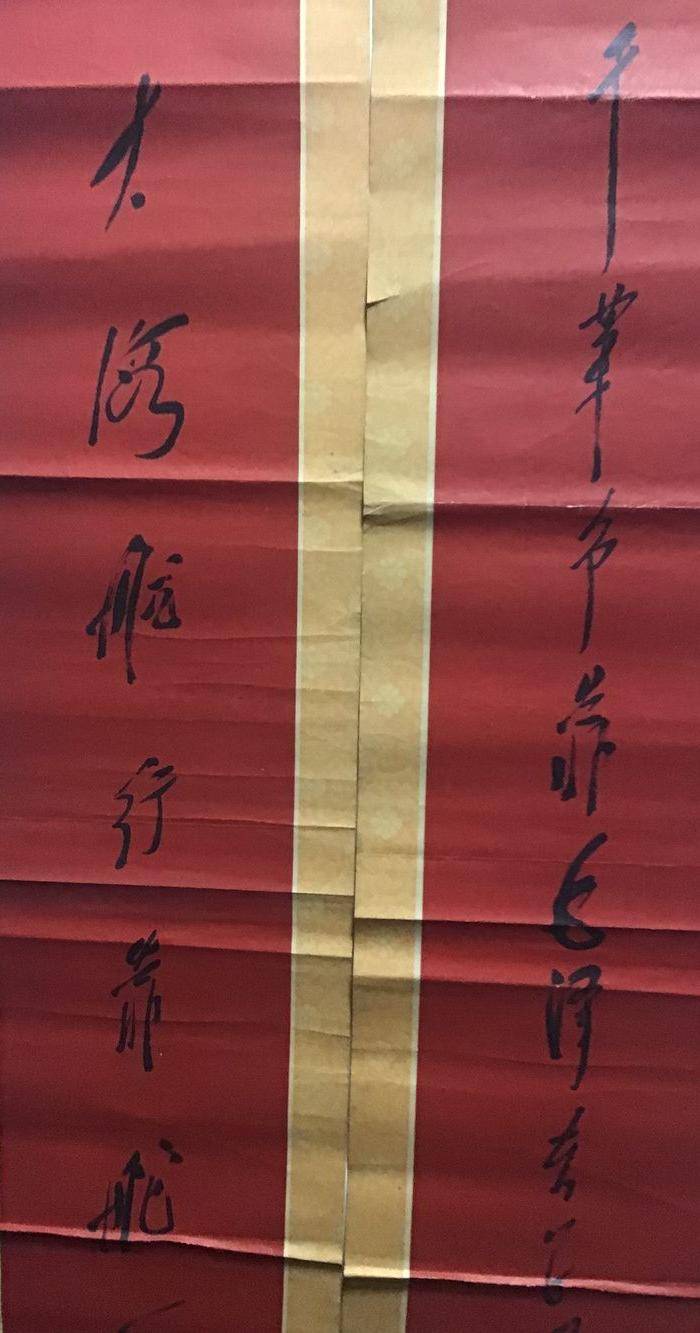 干革命靠毛泽东思
大海航行靠舵